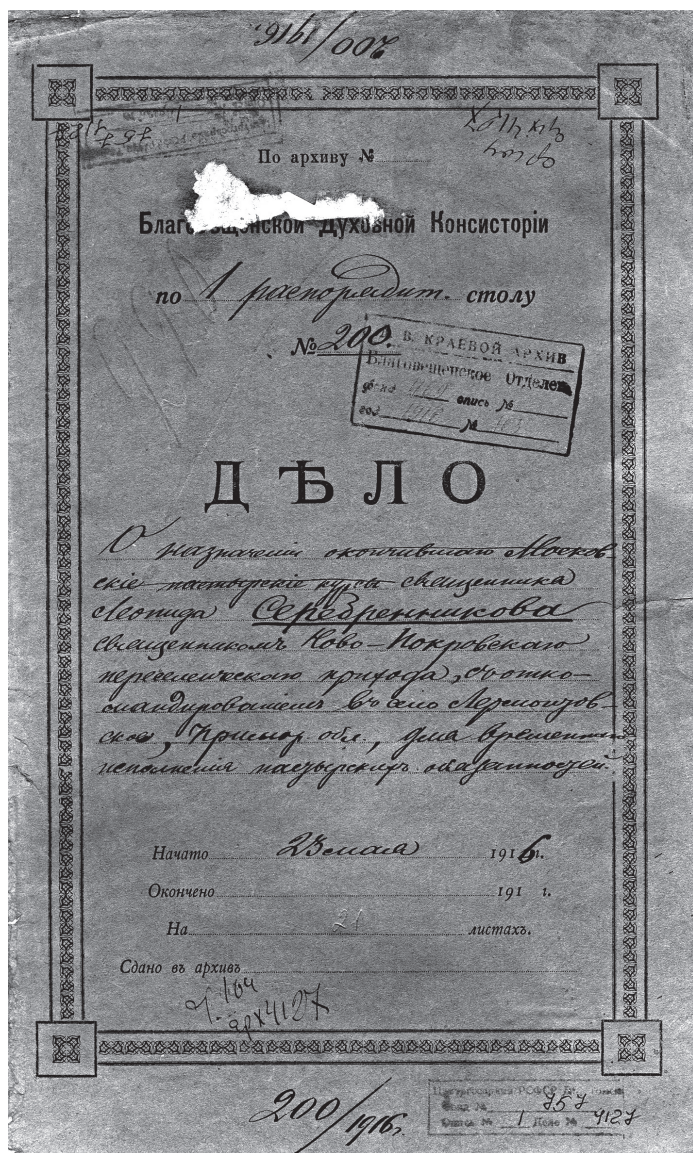 200/1916.
По архиву №
Благовѣщенской Духовной Консисторіи
по 1 распорядит. столу
№ 200.
В. КРАЕВОЙ АРХИВ
Благовещенское Отделен
фонд опись №
год 1916 №
ДѢЛО
О назначеніи окончившаго Москов
скіе пастырскіе курсы священника
Леонида Серебренникова
священникомъ Ново-Покровскаго
переселенческаго прихода, съ отко-
мандированіемъ въ село Лермонтов-
ское, Примор. обл., для временнаго
исполненія пастырскихъ обязанностей.
Начато 23 мая 1916 г.
Окончено 191 г.
На 21 листахъ.
Сдано въ архивъ
ф. 704
арх 4127
200/1916 г.
РСФСР
Фонд № 757
Опись № 1 Дело № 4127